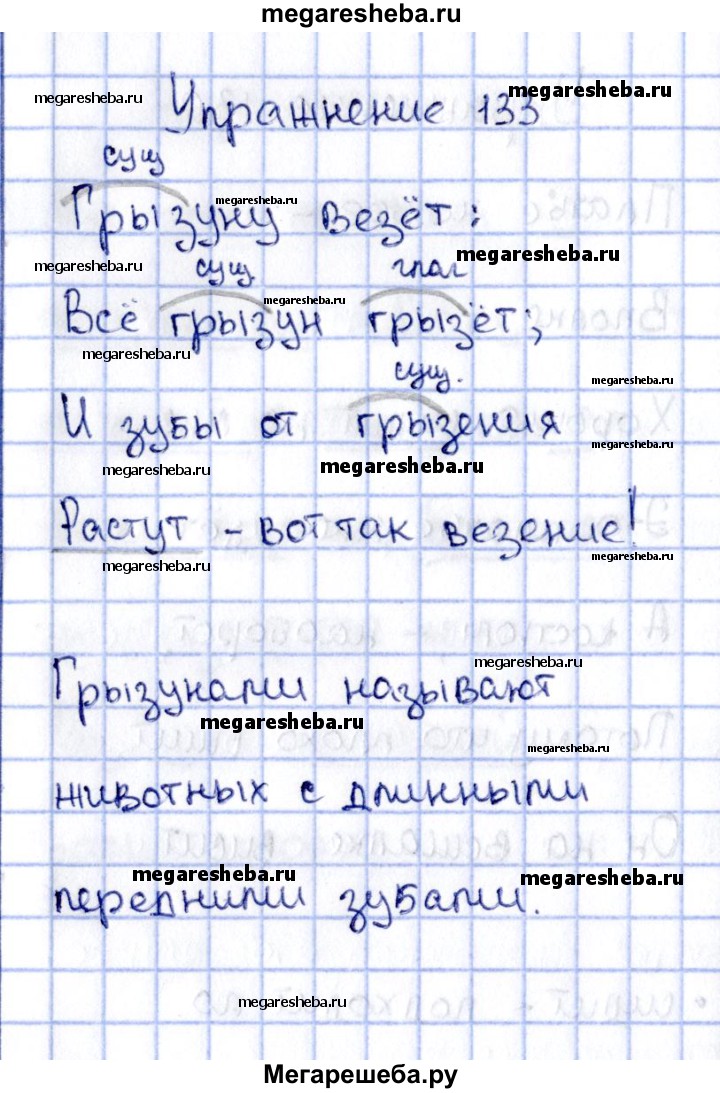 megaresheba.ru
megaresheba.ru
megaresheba.ru
Упражнение 133
сущ
megaresheba.ru
Грызуну везёт:
megaresheba.ru
megaresheba.ru
сущ. глаг
megaresheba.ru
Всё грызун грызёт;
megaresheba.ru
сущ.
megaresheba.ru
И зубы от грызения
megaresheba.ru
megaresheba.ru
megaresheba.ru
Растут - вот так везение!
megaresheba.ru
megaresheba.ru
megaresheba.ru
Грызунами называют
megaresheba.ru
megaresheba.ru
животных с длинными
megaresheba.ru
megaresheba.ru
передними зубами.
megaresheba.ru
Мегарешеба.ру